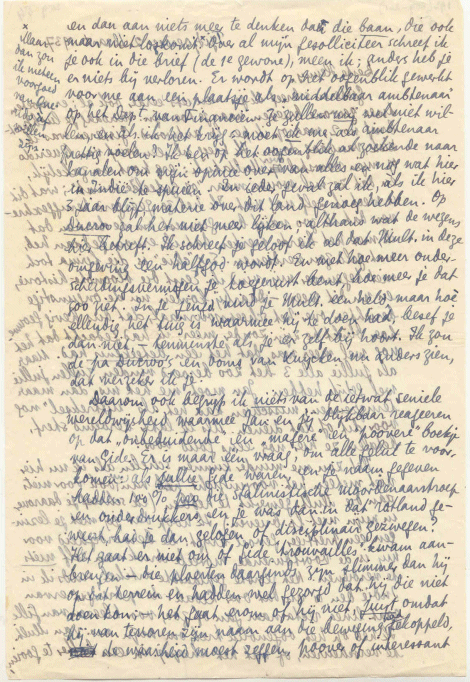 en dan aan niets meer te denken dan die baan, die ook
maar niet loskomt! Over al mijn gesolliciteer schreef ik
je ook in die brief (de 1e gewone), meen ik; anders heb je
er niets bij verloren. Er wordt op het oogenblik gewerkt
voor me aan een plaatsje als "middelbaar ambtenaar"
op het dep. van Financiën. Ze zullen wel niet wil-
len, en als ik het krijg - moet ik me als ambtenaar
voelen? Ik ben op het oogenblik al zoekende naar
kanalen om mijn opinie over van alles en nog wat hier
in Indië te spuien. In ieder geval zal ik, als ik hier
3 jaar blijf, materie over dit land genoeg hebben. Op
Ducroo zal het niet meer lijken - althans wat de wegens
die betreft. Ik schreef je geloof ik al dat Mult. in deze
omgeving een halfgod wordt. En niet hoe meer onder-
scheidingsvermogen je toegerust bent, hoe meer je dat
zoo ziet. In je jeugd vind je Mult. een held, maar hoè
ellendig het tuig is waarmee hij te doen had, besef je
dan niet - tenminste als je er zelf bij hoort. Ik zou
de pa Ducroo's en ooms van Kuyck nu anders zien,
dat verzeker ik je.
Daarom ook begrijp ik niets van de ietwat seniele
wereldwijsheid waarmee Jan en jij blijkbaar reageeren
op dat "onbeduidende", "magere" en "poovere" boekje
van Gide. Er is maar één vraag, om alle gelul te voor-
komen: als jullie Gide waren, en je naam gegeven
hadden 100% aan die Stalinistische moordenaarstroep
en onderdrukkers en je was dan in dat rotland ge-
weest, had je dan gelogen of disciplinair gezwegen?
Het gaat er niet om of Gide trouvailles kwam aan-
brengen - die ploerten daarginds zijn slimmer dan hij
op dat terrein en hadden wel gezorgd dat hij die niet
doen kon; - het gaat erom of hij niet, juist omdat
hij van tevoren zijn naam aan die beweging had gekoppeld,
de waarheid moest zeggen, poover of interessant